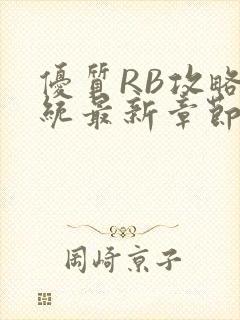 優質RB攻略
統最新章節
岡崎京子